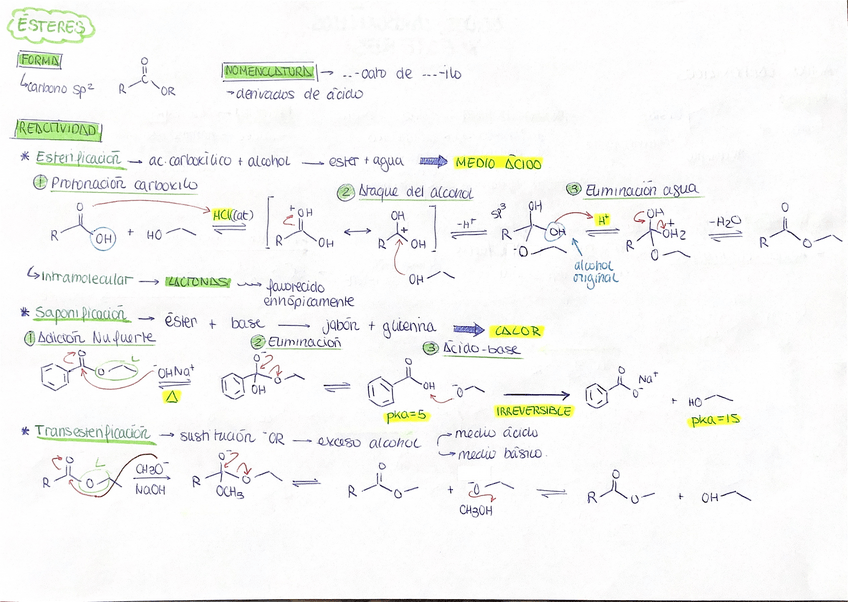 ÉSTERES
FORMA
↳carbono sp²
NOMENCLATURA → ...-oato de ...-ilo
→derivados de ácido
O
R OR
REACTIVIDAD
* Esterificación → ac. carboxílico + alcohol → ester + agua ⇒ MEDIO ÁCIDO
① Protonación carboxilo ② Ataque del alcohol ③ Eliminación agua
R O OH + HO HCl(cat) [ +OH R OH ↔ OH R + OH ] -H⁺ sp³ R OH OH -O H⁺ OH R +OH2 O -H2O R O O
OH
alcohol
original
↳Intramolecular → LACTONAS favorecido
entrópicamente
* Saponificación → éster + base → jabón + glicerina ⇒ CALOR
① Adición Nu fuerte ② Eliminación ③ Ácido-base
O O L ⁻OHNa⁺ Δ O⁻ O OH O OH ⁻O IRREVERSIBLE O O⁻ Na⁺ + HO
pka=5 pka=15
* Transesterificación → sustitución ⁻OR → exceso alcohol → medio ácido
→ medio básico.
R O O L CH3O⁻ NaOH R O⁻ O OCH3 R O O + ⁻O R O O + OH
CH3OH